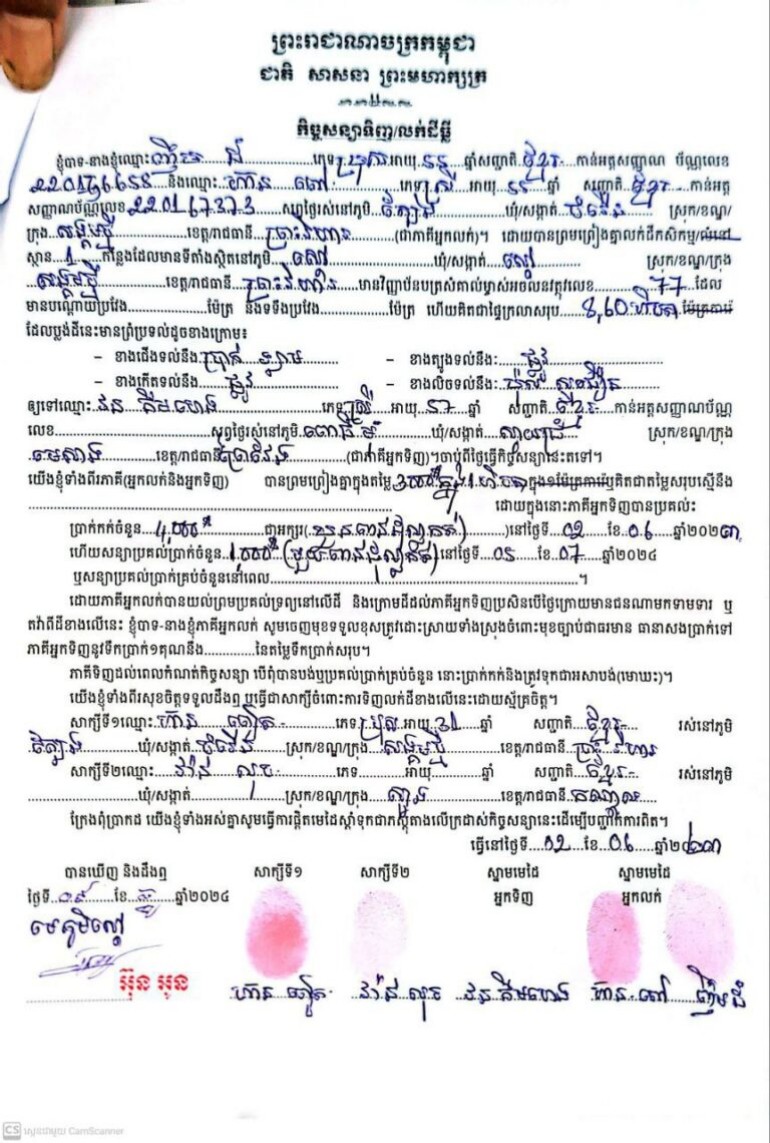 ព្រះរាជាណាចក្រកម្ពុជា
ជាតិ សាសនា ព្រះមហាក្សត្រ
កិច្ចសន្យាទិញ/លក់ដីធ្លី
ខ្ញុំបាទ-នាងខ្ញុំឈ្មោះ ញឹម ជំ ភេទ ប្រុស អាយុ ៥៥ ឆ្នាំសញ្ជាតិ ខ្មែរ កាន់អត្តសញ្ញាណ ប័ណ្ណលេខ
និងឈ្មោះ ហ៊ាន ពៅ ភេទ ស្រី អាយុ ៥៥ ឆ្នាំ សញ្ជាតិ ខ្មែរ កាន់អត្ត
សញ្ញាណប័ណ្ណលេខ 220167373 សព្វថ្ងៃរស់នៅភូមិ ឃុំ/សង្កាត់ ស្រុក/ខណ្ឌ/
ក្រុង សង្គមថ្មី ខេត្ត/រាជធានី ព្រះវិហារ (ជាភាគីអ្នកលក់)។ ដោយបានព្រមព្រៀងគ្នាលក់ដីកសិកម្ម/លំនៅ
ស្ថាន 1 កន្លែងដែលមានទីតាំងស្ថិតនៅភូមិ ឃុំ/សង្កាត់ ស្រុក/ខណ្ឌ/ក្រុង
សង្គមថ្មី ខេត្ត/រាជធានី ព្រះវិហារ មានវិញ្ញាប័នបត្រសំគាល់ម្ចាស់អចលនវត្ថុលេខ 77 ដែល
មានបណ្តោយប្រវែង ម៉ែត្រ និងទទឹងប្រវែង ម៉ែត្រ ហើយគិតជាផ្ទៃក្រលាសរុប 8,60 ហិចតា ម៉ែត្រការ៉េ
ដែលប្លង់ដីនេះមានព្រំប្រទល់ដូចខាងក្រោម៖
- ខាងជើងទល់នឹង ប្រាក់ - ខាងត្បូងទល់នឹង: ផ្លូវ
- ខាងកើតទល់នឹង: ផ្លូវ - ខាងលិចទល់នឹង:
ឲ្យទៅឈ្មោះ វន គឹមហេង ភេទ ស្រី អាយុ 57 ឆ្នាំ សញ្ជាតិ ខ្មែរ កាន់អត្តសញ្ញាណប័ណ្ណ
លេខ សព្វថ្ងៃរស់នៅភូមិ ឃុំ/សង្កាត់ ស្រុក/ខណ្ឌ/ក្រុង
មេសាង ខេត្ត/រាជធានី ព្រៃវែង (ជាភាគីអ្នកទិញ)។ចាប់ពីថ្ងៃធ្វើកិច្ចសន្យានេះតទៅ។
យើងខ្ញុំទាំងពីរភាគី(អ្នកលក់និងអ្នកទិញ) បានព្រមព្រៀងគ្នាក្នុងតម្លៃ ក្នុង 1 ហិចតា ក្នុង១ម៉ែត្រការ៉េឬគិតជាតម្លៃសរុបស្មើនឹង
ដោយក្នុងនោះភាគីអ្នកទិញបានប្រគល់:
ប្រាក់កក់ចំនួន 4,000$ ជាអក្សរ( បួនពាន់ដុល្លាគត់ )នៅថ្ងៃទី 02 ខែ 06 ឆ្នាំ២០២៣
ហើយសន្យាប្រគល់ប្រាក់ចំនួន 1,000$ (មួយពាន់ដុល្លាគត់) នៅថ្ងៃទី 05 ខែ 07 ឆ្នាំ២០២៤
ឬសន្យាប្រគល់ប្រាក់គ្រប់ចំនួននៅពេល ។
ដោយភាគីអ្នកលក់បានយល់ព្រមប្រគល់ទ្រព្យនៅលើដី និងក្រោមដីដល់ភាគីអ្នកទិញប្រសិនបើថ្ងៃក្រោយមានជនណាមកទាមទារ ឬ
តវ៉ាពីដីខាងលើនេះ ខ្ញុំបាទ-នាងខ្ញុំភាគីអ្នកលក់ សូមចេញមុខទទួលខុសត្រូវដោះស្រាយទាំងស្រុងចំពោះមុខច្បាប់ជាធរមាន ធានាសងប្រាក់ទៅ
ភាគីអ្នកទិញនូវទឹកប្រាក់១គុណនឹង នៃតម្លៃទឹកប្រាក់សរុប។
ភាគីទិញដល់ពេលកំណត់កិច្ចសន្យា បើពុំបានបង់ឬប្រគល់ប្រាក់គ្រប់ចំនួន នោះប្រាក់កក់និងត្រូវទុកជាអសាបង់(មោឃះ)។
យើងខ្ញុំទាំងពីរសុខចិត្តទទួលដឹងឮ ឬធ្វើជាសាក្សីចំពោះការទិញលក់ដីខាងលើនេះដោយស្ម័គ្រចិត្ត។
សាក្សីទី១ឈ្មោះ ហ៊ាន ភឿត ភេទ ប្រុស អាយុ 31 ឆ្នាំ សញ្ជាតិ ខ្មែរ រស់នៅភូមិ
ឃុំ/សង្កាត់ ស្រុក/ខណ្ឌ/ក្រុង សង្គមថ្មី ខេត្ត/រាជធានី ព្រះវិហារ
សាក្សីទី២ឈ្មោះ វ៉ាន់ ភេទ អាយុ ឆ្នាំ សញ្ជាតិ ខ្មែរ រស់នៅភូមិ
ឃុំ/សង្កាត់ ស្រុក/ខណ្ឌ/ក្រុង ស្អាង ខេត្ត/រាជធានី កណ្តាល
ក្រែងពុំប្រាកដ យើងខ្ញុំទាំងអស់គ្នាសូមធ្វើការផ្តិតមេដៃស្តាំទុកជាភស្តុតាងលើក្រដាស់កិច្ចសន្យានេះដើម្បីបញ្ជាក់ការពិត។
ធ្វើនៅថ្ងៃទី 02 ខែ 06 ឆ្នាំ២០២៣
បានឃើញ និងដឹងឮ សាក្សីទី១ សាក្សីទី២ ស្នាមមេដៃ ស្នាមមេដៃ
ថ្ងៃទី ខែ ឆ្នាំ២០២៤ អ្នកទិញ អ្នកលក់
មេភូមិស្តៅ
អ៊ុន អូន
ហ៊ាន ភឿត វ៉ាន់ វន គឹមហេង ហ៊ាន ពៅ ញឹម ជំ
CS ស្កេនជាមួយ CamScanner